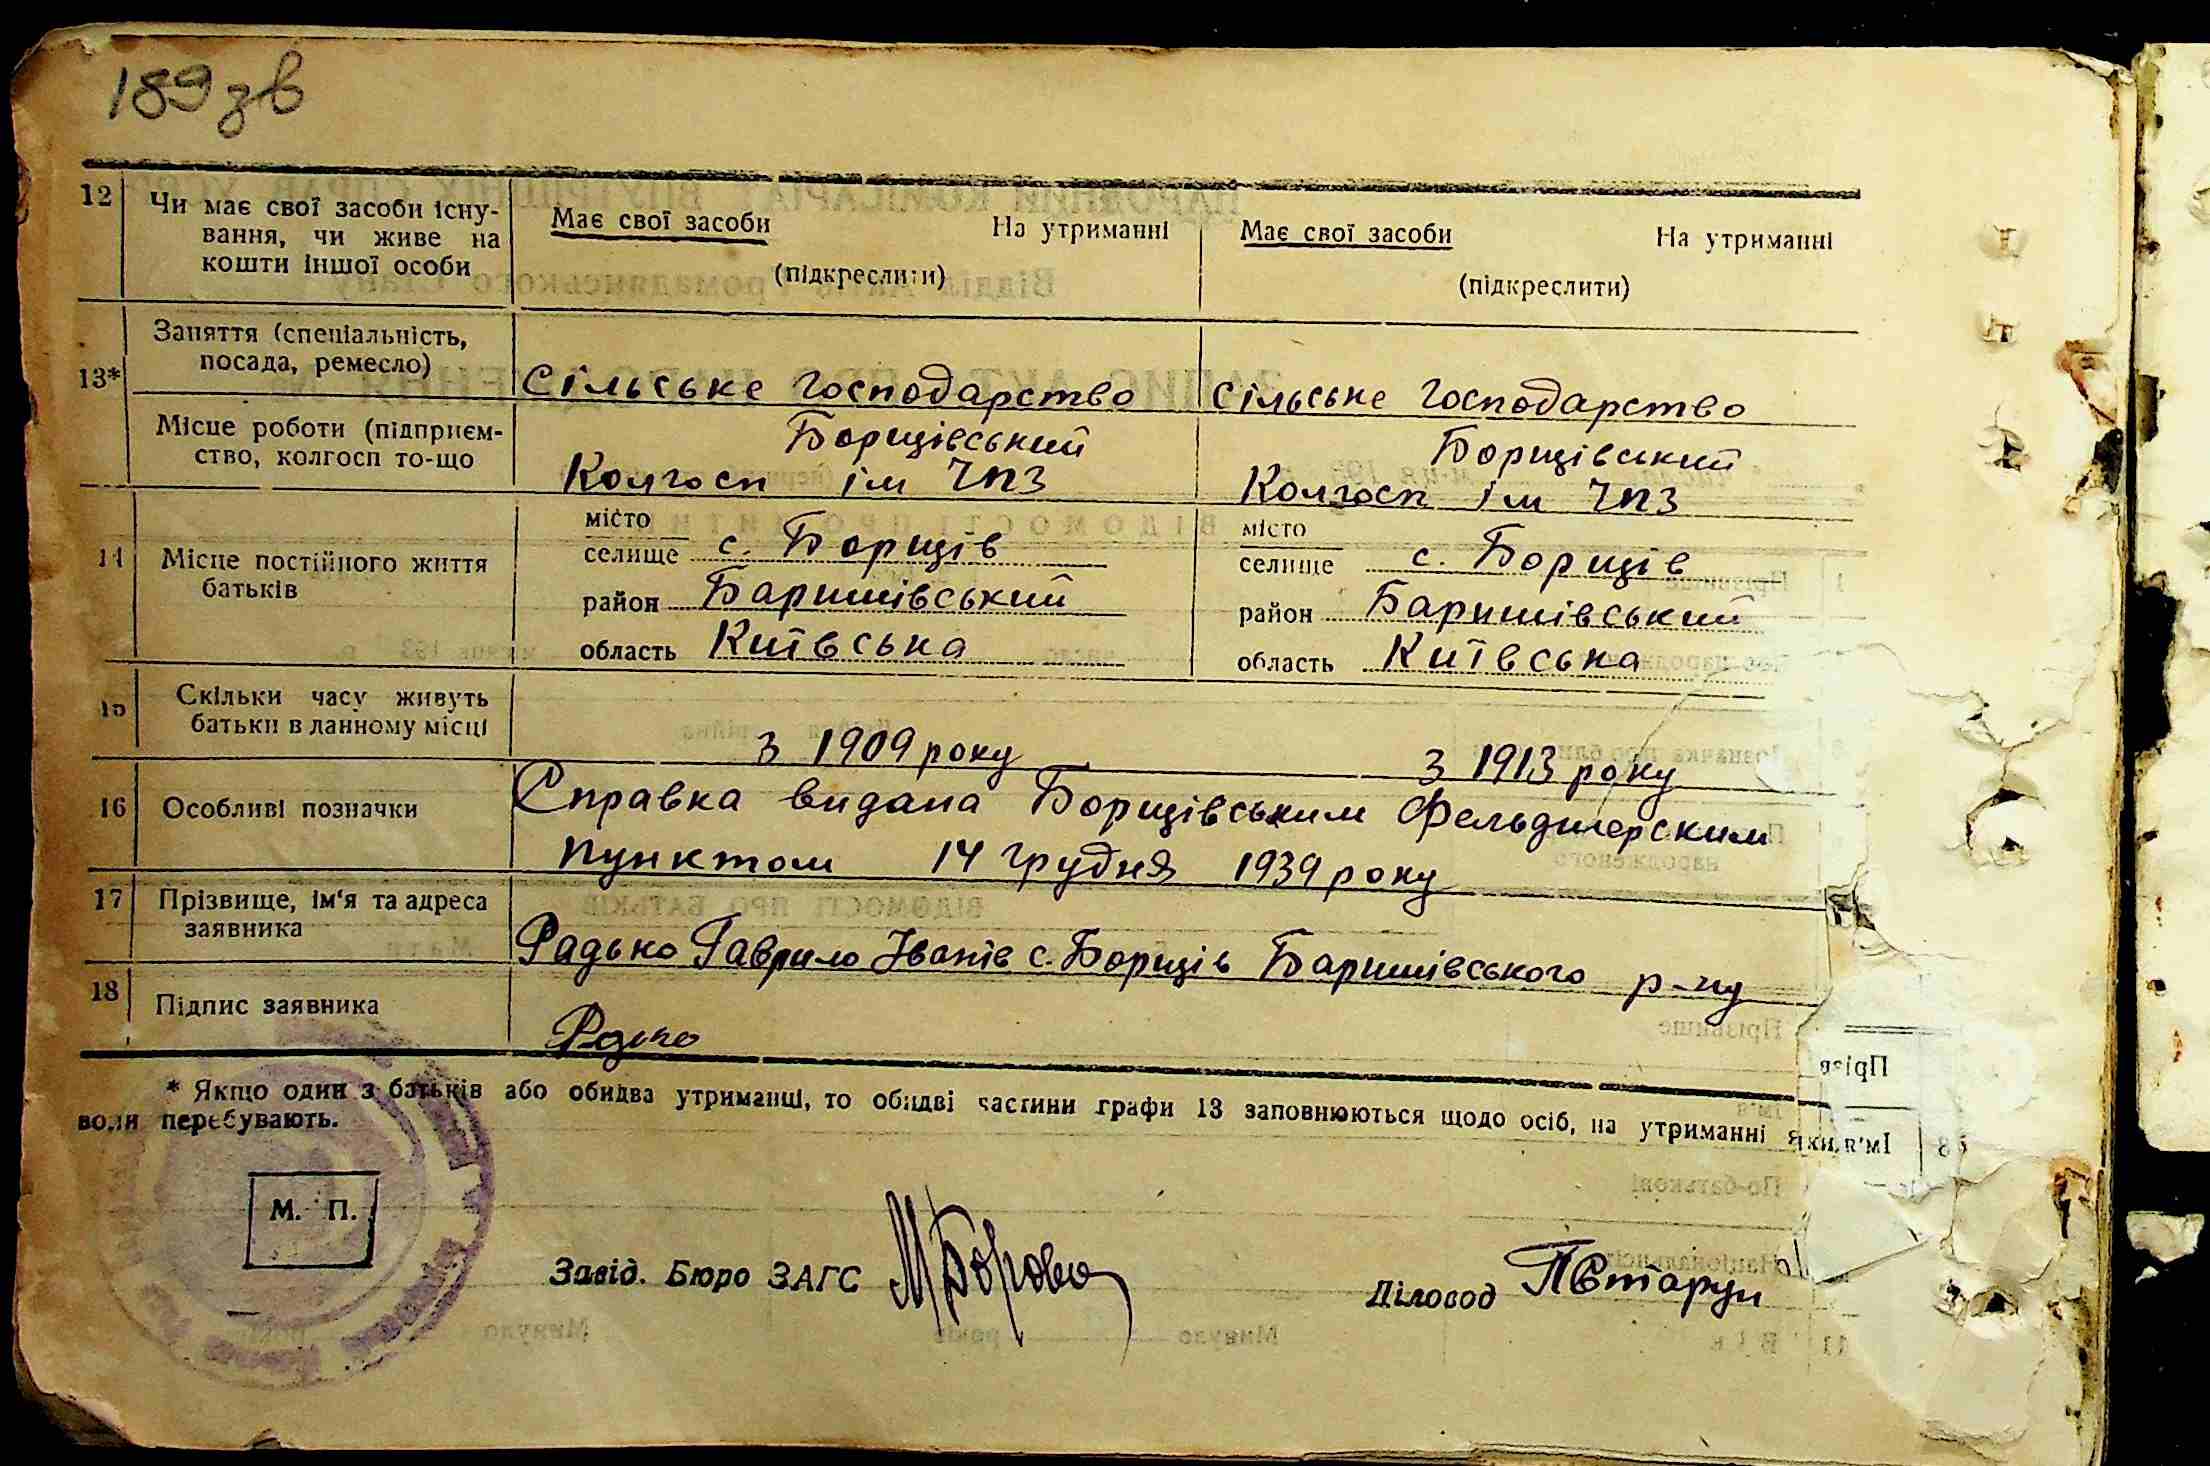 189 зв
12 Чи має свої засоби існу- Має свої засоби На утриманні Має свої засоби На утриманні
вання, чи живе на
кошти іншої особи (підкреслити) (підкреслити)
Заняття (спеціальність,
посада, ремесло)
13* Сільське господарство Сільське господарство
Місце роботи (підприєм- Борщівський Борщівський
ство, колгосп то-що Колгосп ім ЧПЗ Колгосп ім ЧПЗ
місто місто
14 Місце постійного життя селище с. Борщів селище с. Борщів
батьків район Баришівський район Баришівський
область Київська область Київська
15 Скільки часу живуть
батьки в данному місці з 1909 року з 1913 року
16 Особливі позначки Справка видана Борщівським Фельдшерским
пунктом 14 грудня 1939 року
17 Прізвище, ім'я та адреса
заявника Радько Гаврило Іванів с. Борщів Баришівського р-ну
18 Підпис заявника
* Якщо один з батьків або обидва утриманці, то обидві частини графи 13 заповнюються щодо осіб, на утриманні яких
вони перебувають.
М. П.
Завід. Бюро ЗАГС
Діловод